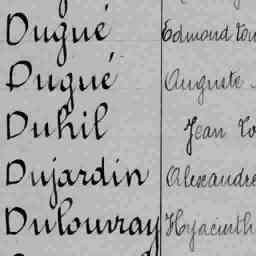 Dugué Edmond Lou
Dugué Auguste
Duhil Jean
Dujardin Alexandre
Dulouvray Hyacinth